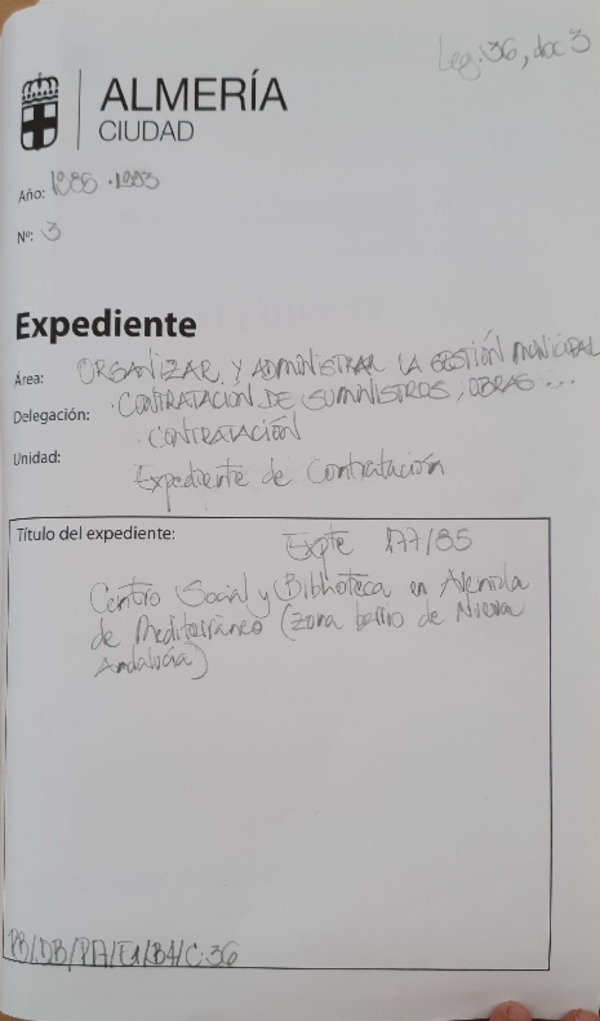 Leg. 36, doc 3
ALMERÍA
CIUDAD
Año: 1985 · 1993
Nº: 3
Expediente
Área: ORGANIZAR Y ADMINISTRAR LA GESTIÓN MUNICIPAL
Delegación: · CONTRATACION DE SUMINISTROS, OBRAS ...
· CONTRATACIÓN
Unidad:
Expediente de Contratación
Título del expediente: Expte 177/85
Centro Social y Biblioteca en Avenida
de Mediterráneo (zona barrio de Nueva
Andalucía)
C.36